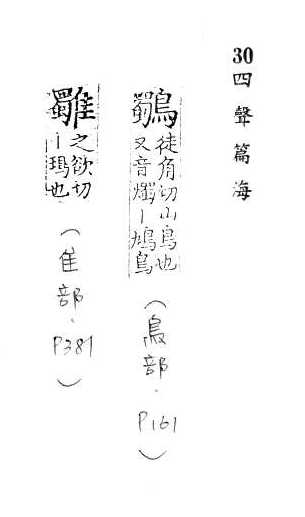 30四聲篇海
鸀徒角切山鳥也
又音燭丨鳿鳥
(鳥部.P161)
雡之欲切
丨瑦也
(隹部.P381)